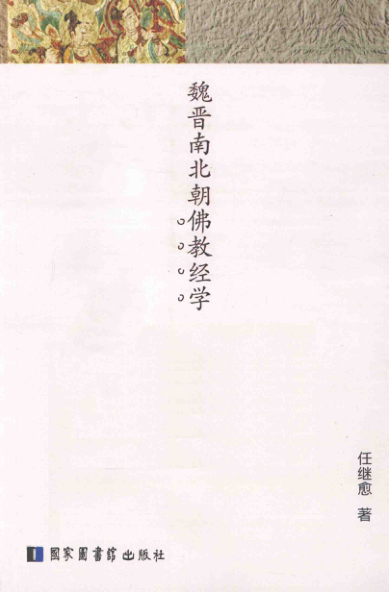 魏晋南北朝佛教经学
任继愈 著
国家图书馆出版社